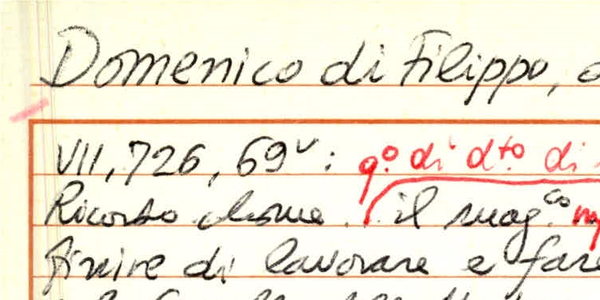 Domenico di Filippo,
VII, 726, 69v: q.o di d.to di
Ricordo chome .. il mag.co
finire di lavorare e fare